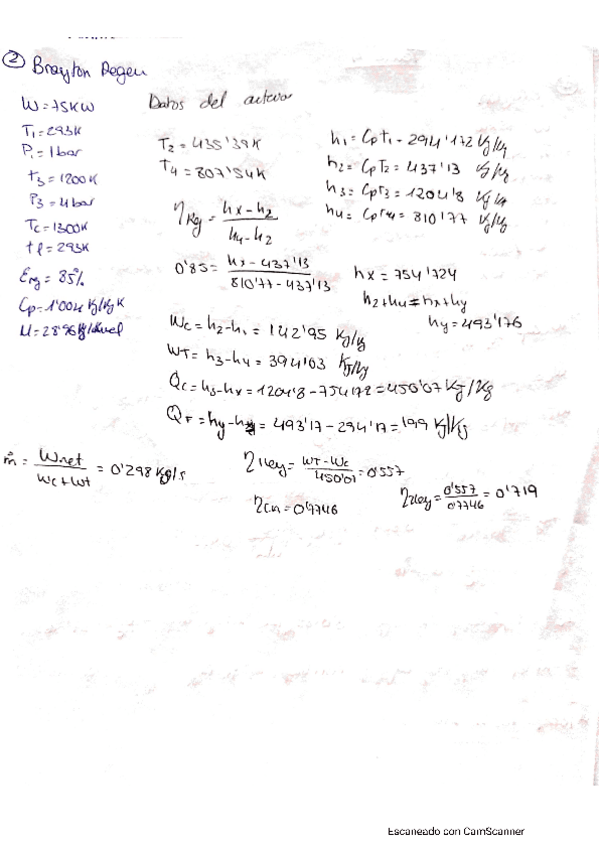 ② Brayton Regen
W = 75KW Datos del anterior
T1 = 293K
P1 = 1 bar
t3 = 1200K
P3 = 4 bar
Tc = 1300K
tf = 293K
Erg = 85%
Cp = 1'004 Kj/KgK
M = 28'96 Kg/Kmol
T2 = 435'39K
T4 = 807'54K
h1 = CpT1 = 294'172 Kj/Kg
h2 = CpT2 = 437'13 Kj/Kg
h3 = CpT3 = 1204'8 Kj/Kg
h4 = CpT4 = 810'77 Kj/Kg
ηRg = hx - h2 / h4 - h2
0'85 = hx - 437'13 / 810'77 - 437'13
hx = 754'724
h2 + h4 = hx + hy
hy = 493'176
Wc = h2 - h1 = 142'95 Kj/Kg
WT = h3 - h4 = 394'03 Kj/Kg
Qc = h3 - hx = 1204'8 - 754'72 = 450'07 KJ/Kg
QF = hy - = 493'17 - 294'17 = 199 Kj/Kg
ṁ = Wnet / Wc + Wt = 0'298 Kg/s
η1ley = WT - Wc / 450'07 = 0'557
ηCn = 0'7746
η2ley = 0'557 / 0'7746 = 0'719
Escaneado con CamScanner